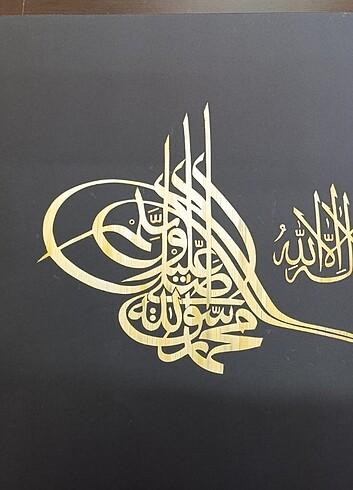 لا إله إلا الله
محمد رسول الله
صلى الله عليه وسلم